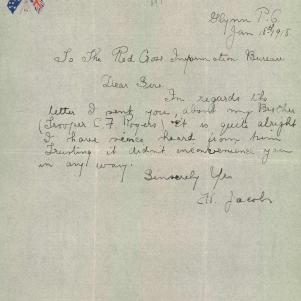 Glynn P.O
Jan 15th 1915
To The Red Cross Information Bureau
Dear Sirs.
In regards the
letter I sent you, about my Brother
(Trooper C. F. Rogers) it is quite alright
I have since heard from him
Trusting it didn't inconvenience you
in any way.
Sincerely Yrs
W. Jacobs